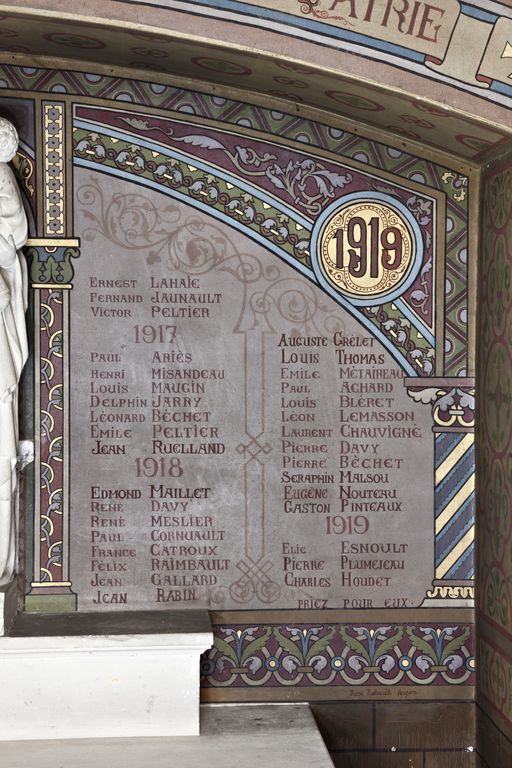 PATRIE
1919
Ernest Lahaie
Fernand Jaunault
Victor Peltier
1917
Paul Ariès
Henri Misandeau
Louis Maugin
Delphin Jarry
Léonard Béchet
Emile Peltier
Jean Ruelland
1918
Edmond Maillet
René Davy
René Meslier
Paul Cornuault
France Catroux
Félix Raimbault
Jean Gallard
Jean Rabin
Auguste Grélet
Louis Thomas
Emile Métaireau
Paul Achard
Louis Bléret
Léon Lemasson
Laurent Chauvigné
Pierre Davy
Pierre Béchet
Seraphin Malsou
Eugène Nouteau
Gaston Pinteaux
1919
Elie Esnoult
Pierre Plumejeau
Charles Houdet
PRIEZ POUR EUX.
Angers